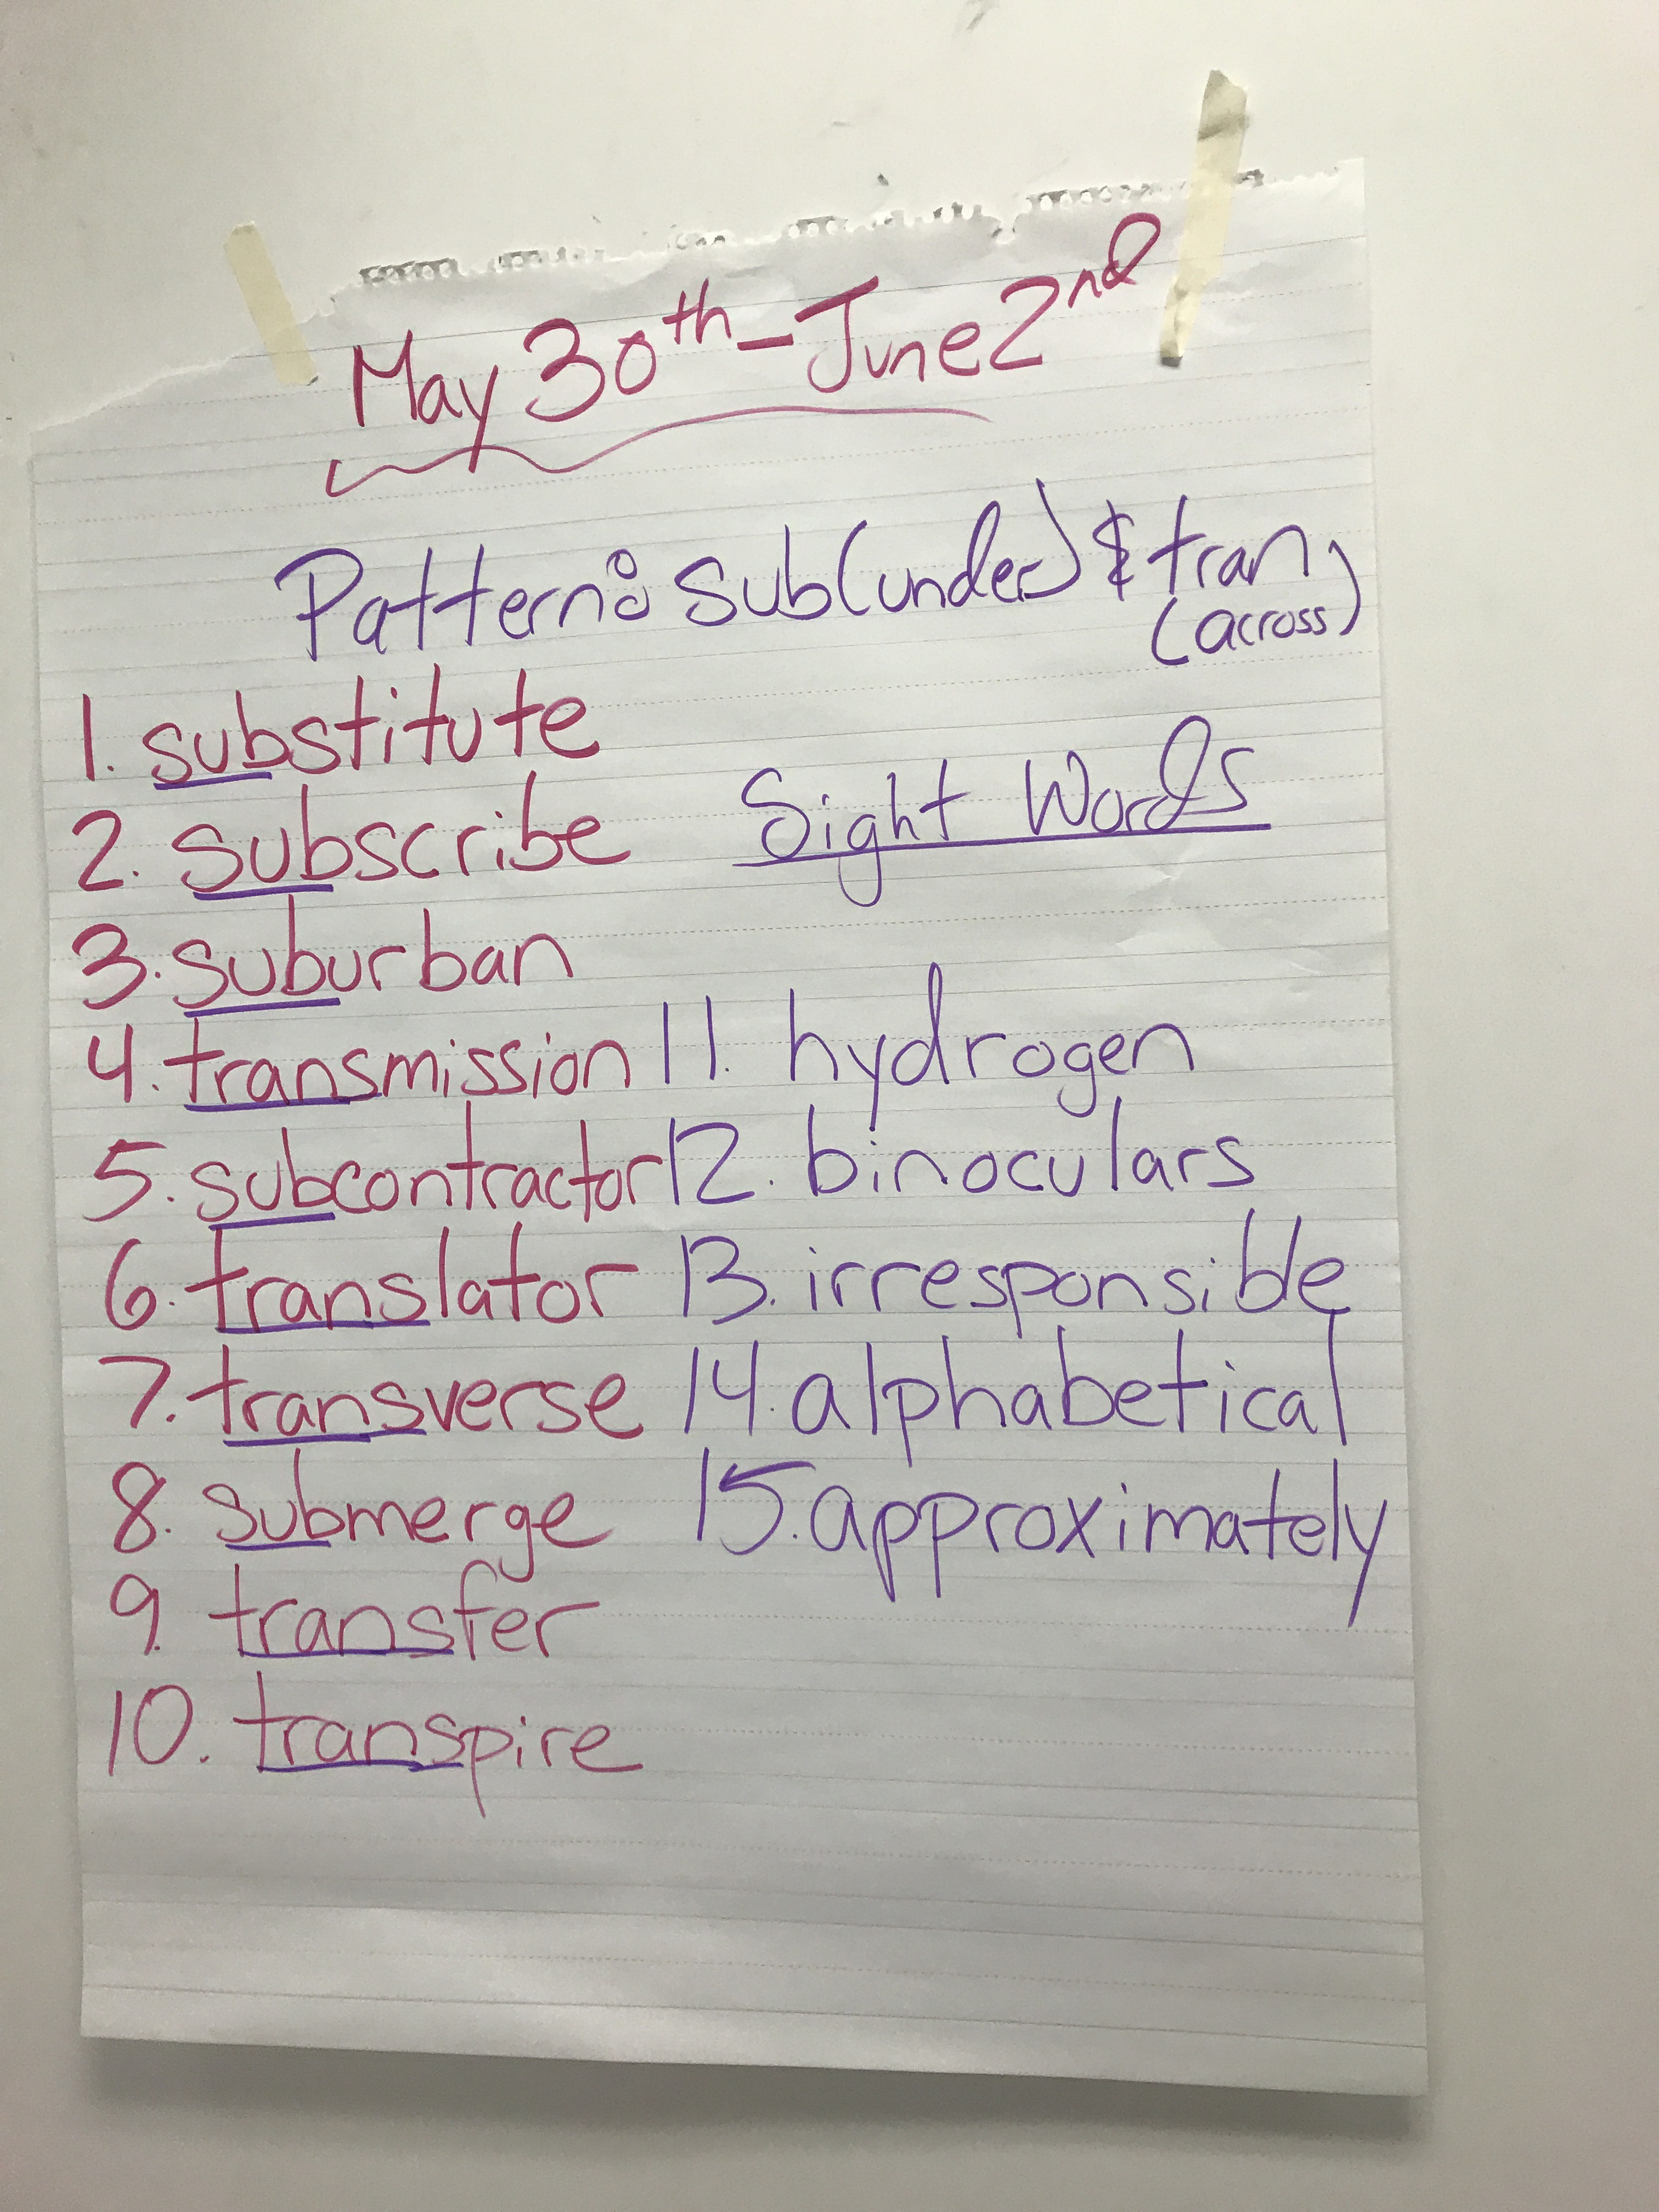 May 30th - June 2nd
Pattern: sub (under) & tran
(across)
1. substitute
2. subscribe
3. suburban
4. transmission
5. subcontractor
6. translator
7. transverse
8. submerge
9. transfer
10. transpire
Sight Words
11. hydrogen
12. binoculars
13. irresponsible
14. alphabetical
15. approximately